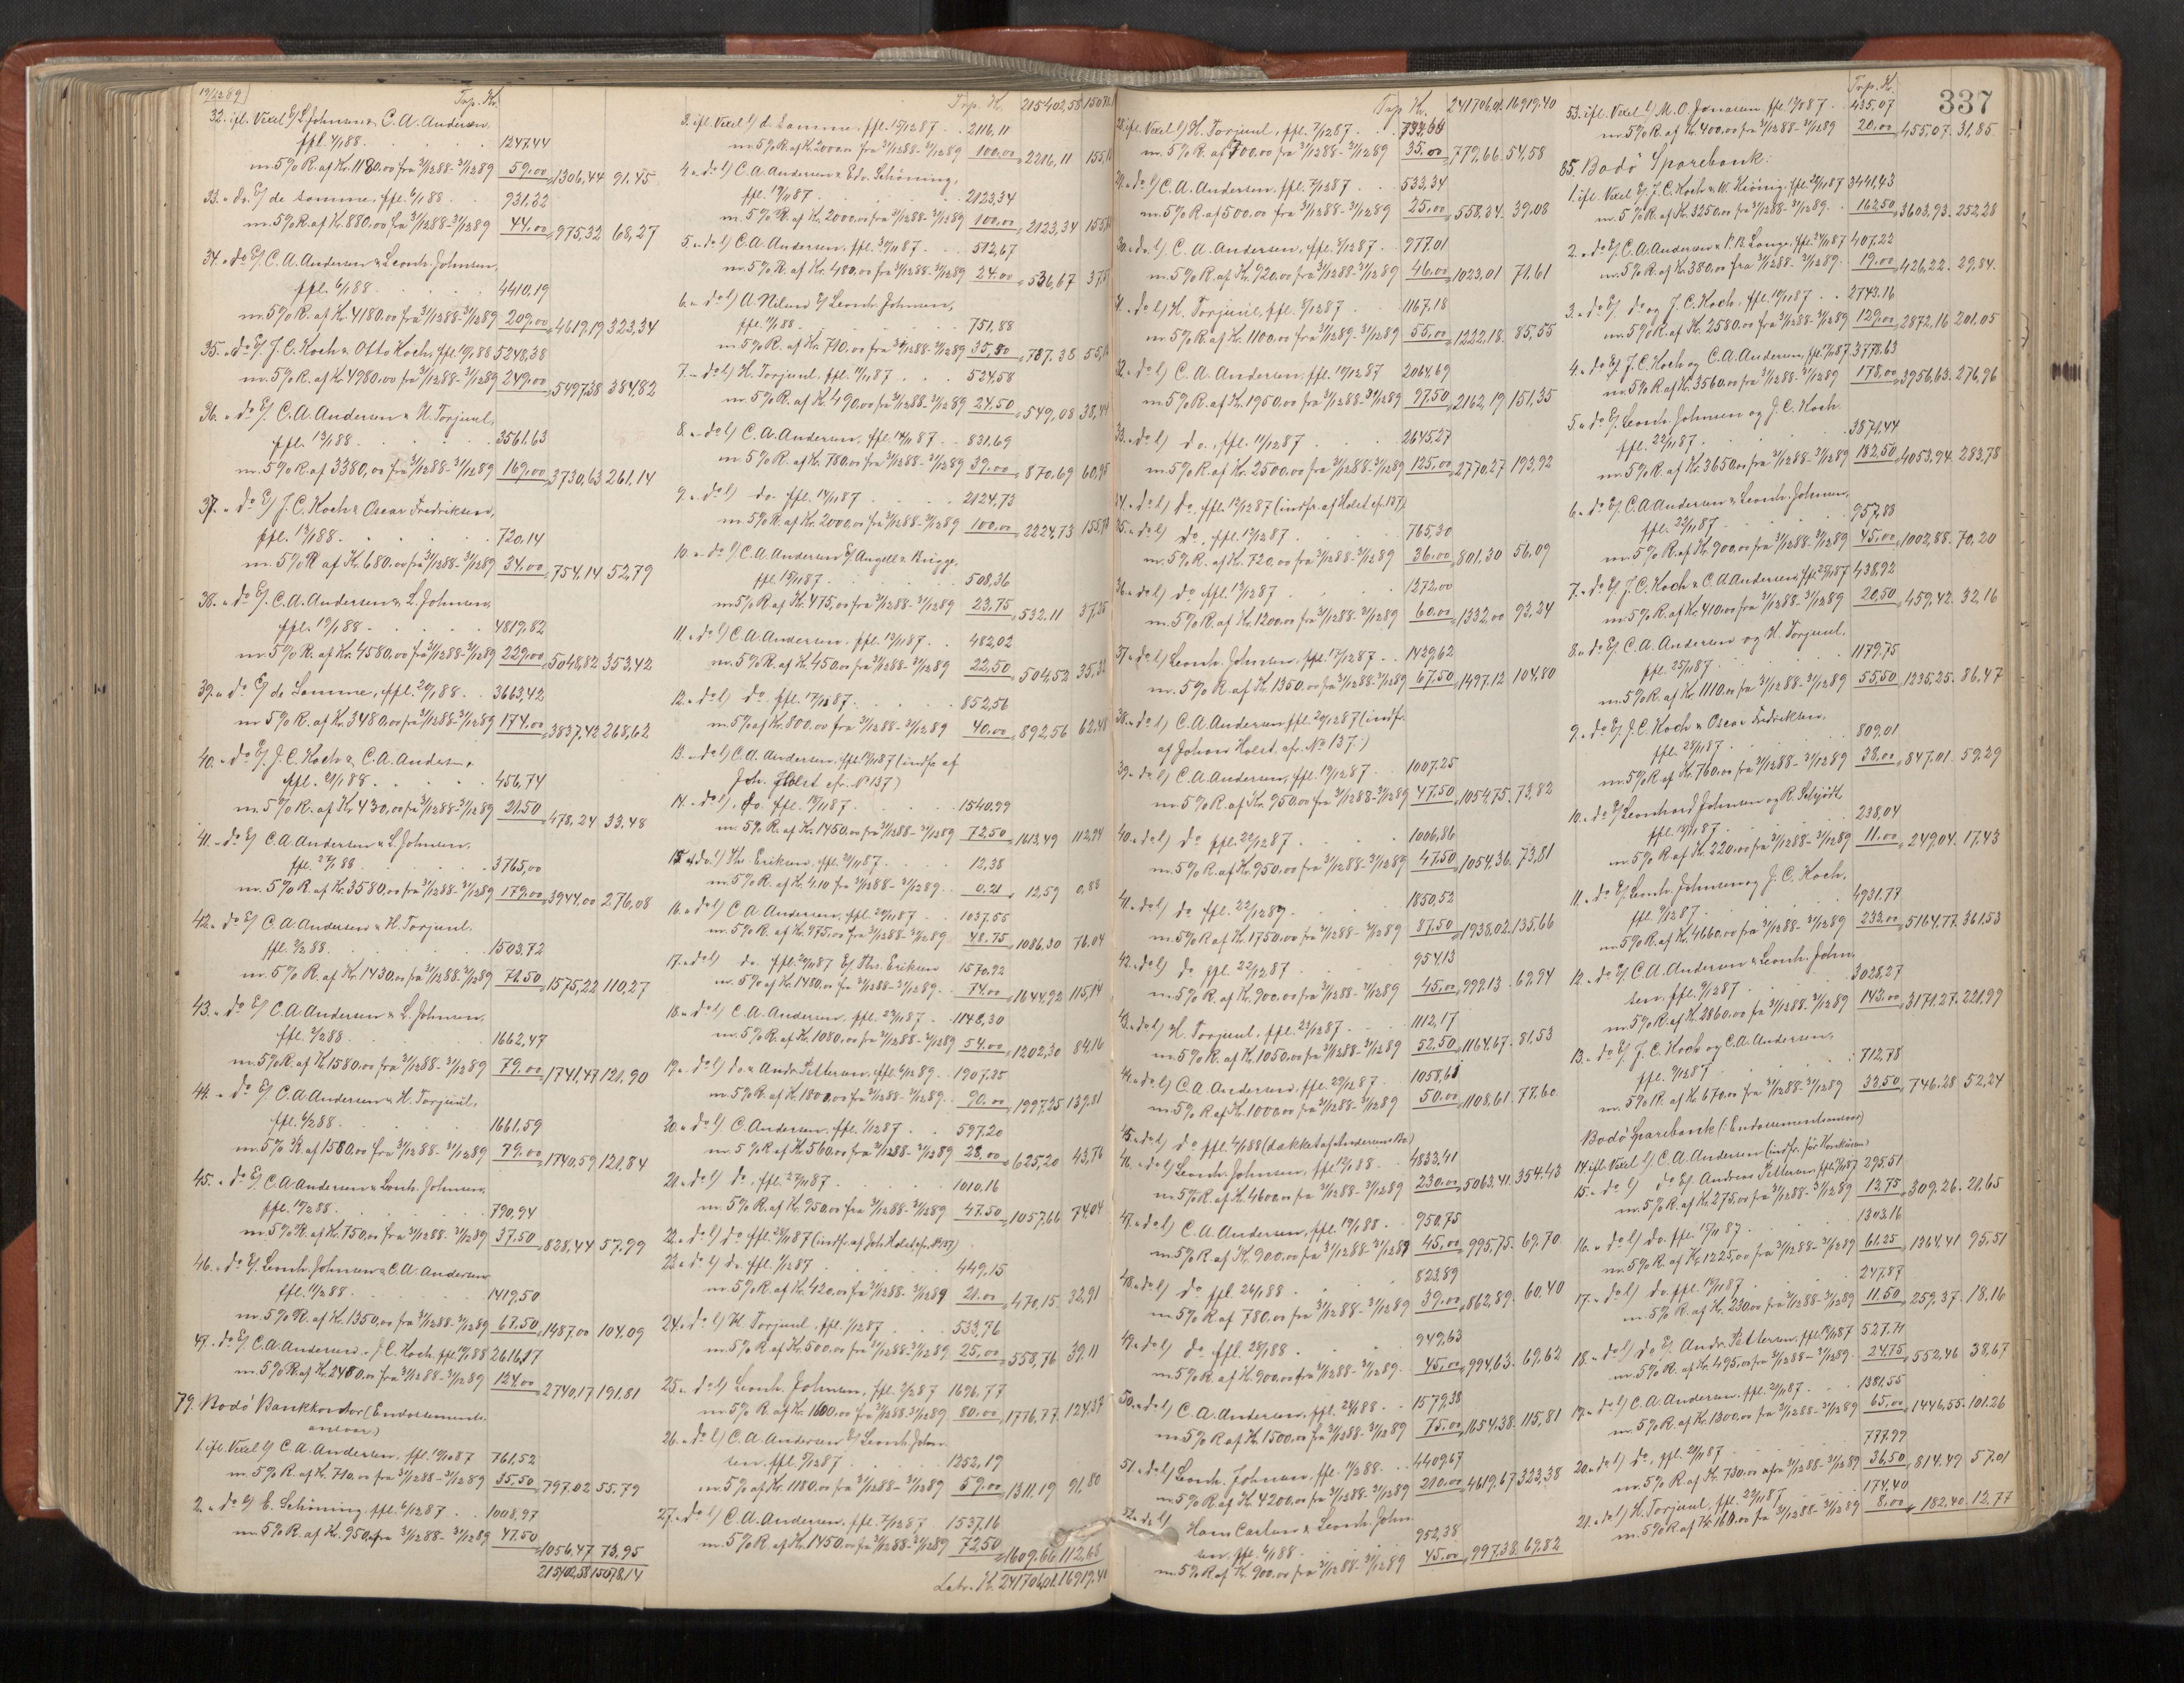 19/12 89 Trp. Kr.
32. ifl. Vexel E/ L. Johnsen & C. A. Andersen,
ffl. 4/1 88. 1247,44
m. 5% R. af Kr. 1180,00 fra 31/12 88 - 31/12 89 59,00 1306,44 91,45
33. " do. E/ de samme, ffl. 6/1 88 931,32
m. 5% R. af Kr. 880,00 fra 31/12 88 - 31/12 89 44,00 975,32 68,27
34. " do E/ C. A. Andersen & Leonh. Johnsen,
ffl. 6/1 88 4410,19
m. 5% R. af Kr. 4180,00 fra 31/12 88 - 31/12 89 209,00 4619,19 323,34
35. " do E/ J. C. Koch & Otto Koch, ffl. 10/1 88 5248,38
m. 5% R. af Kr. 4980,00 fra 31/12 88 - 31/12 89 249,00 5497,38 384,82
36. " do E/ C. A. Andersen & H. Torjuul,
ffl. 13/1 88 3561,63
m. 5% R. af 3380,00 fra 31/12 88 - 31/12 89 169,00 3730,63 261,14
37. " do E/ J. C. Koch & Oscar Fredriksen,
ffl. 13/1 88. 720,14
m. 5% R af Kr. 680,00 fra 31/12 88 - 31/12 89 34,00 754,14 52,79
38. " do E/ C. A. Andersen & L. Johnsen,
ffl. 19/1 88 4819,82
m. 5% R. af Kr. 4580,00 fra 31/12 88 - 31/12 89 229,00 5048,82 353,42
39. " do E/ de Samme, ffl. 20/1 88. 3663,42
m 5% R. af Kr. 3480,00 fra 31/12 88 - 31/12 89 174,00 3837,42 268,62
40. " do E/ J. C. Koch & C. A. Andersen
ffl. 21/1 88. 456,74
m. 5% R. af Kr 430,00 fra 31/12 88 - 31/12 89 21,50 478,24 33,48
41. " do E/ C. A. Andersen & L. Johnsen,
ffl. 27/1 88 3765,00
m. 5% R. af Kr. 3580,00 fra 31/12 88 - 31/12 89 179,00 3944,00 276,08
42. " do E/ C. A. Andersen & H. Torjuul,
ffl. 3/2 88. 1503,72
m. 5% R. af Kr. 1430,00 fra 31/12 88 - 31/12 89 71,50 1575,22 110,27
43. " do E/ C. A. Andersen & L. Johnsen,
ffl. 3/2 88. 1662,47
m. 5% R. af Kr. 1580,00 fra 31/12 88 - 31/12 89 79,00 1741,47 121,90
44. " do E/ C. A. Andersen & H. Torjuul,
ffl. 6/2 88. 1661,59
m. 5% R. af 1580,00 fra 31/12 88 - 31/12 89 79,00 1740,59 121,84
45. " do E/ C. A. Andersen & Leonh. Johnsen,
ffl. 10/2 88. 790,94
m. 5% R. af Kr. 750,00 fra 31/12 88 - 31/12 89 37,50 828,44 57,99
46. " do E/ Leonh. Johnsen & C. A. Andersen
ffl. 11/2 88. 1419,50
m. 5% R. af Kr. 1350,00 fra 31/12 88 - 31/12 89 67,50 1487,00 104,09
47. " do E/ C. A. Andersen & J. C. Koch, ffl. 10/2 88 2616,17
m. 5% R. af Kr. 2480,00 fra 31/12 88 - 31/12 89 124,00 2740,17 191,81
79. Bodö Bankkontor (Endossements-
ansvar)
1. ifl. Vexel E/ C. A. Andersen, ffl. 10/10 87 761,52
m. 5% R. af K. 710,00 fra 31/12 88 - 31/12 89 35,50 797,02 55,79
2. " do E/ E. Schöning, ffl. 6/12 87 1008,97
m. 5% R. af K. 950, fra 31/12 88 - 31/12 89 47,50 1056,47 73,95
215402,58 15078,14
Trp. K. 215402,58 15078
3. ifl. Vexel E/ d. Samme, ffl. 15/12 87 2116,11
m. 5% R. af K. 2000,00 fra 31/12 88 - 31/12 89 100,00 2216,11 155,
4. " do E/ C. A. Andersen & Edv. Schöning,
ffl. 19/11 87 2123,34
m. 5% R. af K. 2000,00 fra 31/12 88 - 31/12 89 100,00 2123,34 155,
5. " do E/ C. A. Andersen, ffl. 30/11 87 512,67
m. 5% R. af Kr. 480,00 fra 31/12 88 - 31/12 89 24,00 536,67 37,
6. " do E/ A. Nilsen E/ Leonh. Johnsen,
ffl. 4/1 88. 751,88
m. 5% R. af Kr. 710,00 fra 31/12 88 - 31/12 89 35,50 787,38 55,
7. " do E/ H. Torjuul, ffl. 11/11 87 524,58
m. 5% R. af K. 490,00 fra 31/12 88 - 31/12 89 24,50 549,08 38,44
8. " do E/ C. A. Andersen, ffl. 14/11 87 831,69
m 5% R. af K. 780,00 fra 31/12 88 - 31/12 89 39,00 870,69 60,95
9. " do E/ do ffl. 14/11 87 2124,73
m. 5% R. af K. 2000,00 fra 31/12 88 - 31/12 89 100,00 2224,73 155,
10. " do E/ C. A. Andersen E/ Angell & Brügge,
ffl. 15/11 87 508,36
m 5% R. af K. 475,00 fra 31/12 88 - 31/12 89 23,75 532,11 37,25
11. " do E/ C. A. Andersen, ffl. 13/11 87 482,02
m. 5% R. af K. 450,00 fra 31/12 88 - 31/12 89 22,50 504,52 35,32
12. " do E/ do ffl. 17/11 87 852,56
m. 5% af Kr. 800,00 fra 31/12 88 - 31/12 89 40,00 892,56 62,48
13. " do E/ C. A. Andersen, ffl. 19/11 87 (indfr. af
Joh. Holst cfr. No 137)
14. " do E/ do. ffl. 19/11 87 1540,99
m. 5% R. af K. 1450,00 fra 31/12 88 - 31/12 89 72,50 1613,49 112,94
15 " do E/ Thr. Eriksen, ffl. 21/11 87 12,38
m. 5% R. af K. 4,10 fra 31/12 88 - 31/12 89 0,21 12,59 0,88
16. " do E/ C. A. Andersen, ffl. 20/11 87 1037,55
m. 5% R. af K. 975,00 fra 31/12 88 - 31/12 89 48,75 1086,30 76,04
17. " do E/ do. ffl. 20/11 87 E/ Thr. Eriksen 1570,92
m. 5% af Kr. 1480,00 fra 31/12 88 - 31/12 89 74,00 1644,92 115,14
18. " do E/ C. A. Andersen, ffl. 23/11 87 1148,30
m. 5% R. af K. 1080,00 fra 31/12 88 - 31/12 89 54,00 1202,30 84,16
19. " do E/ do & Andr. Pettersen, ffl. 6/12 89 1907,25
m. 5% R. af K. 1800,00 fra 31/12 88 - 31/12 89 90,00 1997,25 139,81
20. " do E/ C. Andersen, ffl. 1/12 87 597,20
m. 5% R. af K. 560,00 fra 31/12 88 - 31/12 89 28,00 625,20 43,76
21. " do E/ do, ffl. 27/11 87 1010,16
m. 5% R. af K. 950,00 fra 31/12 88 - 31/12 89 47,50 1057,66 74,04
22. " do E/ do ffl. 28/11 87 (indfr. af Joh Holst cfr. No 137)
23. " do E/ do. ffl. 1/12 87 449,15
m. 5% R. af K. 420,00 fra 31/12 88 - 31/12 89 21,00 470,15 32,91
24. " do E/ H. Torjuul, ffl. 1/12 87 533,76
m. 5% R. af K. 500,00 fra 31/12 88 - 31/12 89 25,00 558,76 39,11
25. " do E/ Leonh. Johnsen, ffl. 2/12 87 1696,77
m. 5% R. af Kr. 1600,00 fra 31/12 88 - 31/12 89 80,00 1776,77 124,37
26. " do E/ C. A. Andersen E/ Leonh. John-
sen, ffl. 5/12 87 1252,19
m. 5% af Kr. 1180,00 fra 31/12 88 - 31/12 89 59,00 1311,19 91,80
27. " do E/ C. A. Andersen, ffl. 7/12 87 1537,16
m. 5% R. af K. 1450,00 fra 31/12 88 - 31/12 89 72,50 1609,66 112,68
Latr. K. 241706,01 16919,4
337
Trp Kr. 241706,01 16919,40
28. ifl. Vexel E/ H. Torjuul, ffl. 7/12 87 744,66
m. 5% R. af 700,00 fra 31/12 88 - 31/12 89 35,00 779,66 54,58
29. " do E/ C. A. Andersen, ffl. 7/12 87 533,34
m. 5% R. af 500,00 fra 31/12 88 - 31/12 89 25,00 558,34 39,08
30. " do E/ C. A. Andersen, ffl. 8/12 87 977,01
m. 5% R. af K. 920,00 fra 31/12 88 - 31/12 89 46,00 1023,01 71,61
31. " do E/ H. Torjuul, ffl. 8/12 87 1167,18
m 5% R. af K. 1100,00 fra 31/12 89 - 31/12 89 55,00 1222,18 85,55
32. " do E/ C. A. Andersen, ffl. 10/12 87 2064,69
m 5% R. af K. 1950,00 fra 31/12 88 - 31/12 89 97,50 2162,19 151,35
33. " do E/ do., ffl. 11/12 87 2645,27
m. 5% R. af Kr. 2500,00 fra 31/12 88 - 31/12 89 125,00 2770,27 193,92
34. " do E/ do, ffl. 12/12 87 (indfr. af Holst cfr. 137)
35. " do E/ do, ffl. 12/12 87 765,30
m. 5% R. af K. 720,00 fra 31/12 88 - 31/12 89 36,00 801,30 56,09
36. " do E/ do ffl. 13/12 87 1272,00
m. 5% R. af K. 1200,00 fra 31/12 88 - 31/12 89 60,00 1332,00 93,24
37. " do E/ Leonh. Johnsen, ffl. 17/12 87 1429,62
m. 5% R. af K. 1350,00 fra 31/12 88 - 31/12 89 67,50 1497,12 104,80
38. " do E/ C. A. Andersen ffl. 20/12 87 (indfr.
af Johan Holst, cfr. No 137.)
39. " do E/ C. A. Andersen, ffl. 19/12 87 1007,25
m. 5% R. af Kr. 950,00 fra 31/12 88 - 31/12 89 47,50 1054,75 73,82
40. " do E/ do ffl. 22/12 87 1006,86
m. 5% R. af Kr. 950,00 fra 31/12 88 - 31/12 89 47,50 1054,36 73,81
41. " do E/ do ffl. 22/12 89 1850,52
m. 5% R af K. 1750,00 fra 31/12 88 - 31/12 89 87,50 1938,02 135,66
42. " do E/ do ffl. 22/12 87 954,13
m. 5% R. af K. 900,00 fra 31/12 88 - 31/12 89 45,00 999,13 69,94
43. " do E/ H. Torjuul, ffl. 23/12 87 1112,17
m. 5% R. af K. 1050,00 fra 31/12 88 - 31/12 89 52,50 1164,67 81,53
44. " do E/ C. A. Andersen, ffl. 29/12 87 1058,61
m. 5% R af K. 1000,00 fra 31/12 88 - 31/12 89 50,00 1108,61 77,60
45. " do E/ do ffl. 4/1 88 (dækket af Andersens Bo)
46. " do E/ Leonh. Johnsen, ffl. 12/1 88 4833,41
m 5% R. af K. 4600,00 fra 31/12 88 - 31/12 89 230,00 5063,41 354,43
47. " do E/ C. A. Andersen, ffl. 19/1 88 950,75
m 5% R. af K. 900,00 fra 31/12 88 - 31/12 89 45,00 995,75 69,70
48. " do E/ do ffl. 24/1 88 823,89
m 5% R af 780,00 fra 31/12 88 - 31/12 89 39,00 862,89 60,40
49. " do E/ do, ffl. 28/1 88 949,63
m. 5% R. af K. 900,00 fra 31/12 88 - 31/12 89 45,00 994,63 69,62
50. " do E/ C. A. Andersen, ffl. 28/1 88 1579,38
m. 5% R. af K. 1500,00 fra 31/12 88 - 31/12 89 75,00 1654,38 115,81
51. " do E/ Leonh. Johnsen, ffl. 11/2 88 4409,67
m 5% R. af K. 4200,00 fra 31/12 88 - 31/12 89 210,00 4619,67 323,38
52. " do E/ Hans Carlsen & Leonh. John-
sen, ffl. 6/1 88 952,38
m. 5% R af Kr. 900,00 fra 31/12 88 - 31/12 89 45,00 997,38 69,82
Trp. K.
53. ifl. Vexel E/ M. O. Jonasen ffl. 12/8 87 435,07
m. 5% R. af K. 400,00 fra 31/12 88 - 31/12 89 20,00 455,07 31,85
85. Bodö Sparebank:
1. ifl. Vexel E/ J. C. Koch & W. Krönig, ffl. 20/11 87 3441,43
m. 5% R. af K. 3250,00 fra 31/12 88 - 31/12 89 162,50 3603,93 252,28
2. " do E/ C. A. Andersen & P. B. Lange, ffl. 24/11 87 407,22
m. 5% R. af K. 380,00 fra 31/12 88 - 31/12 89 19,00 426,22 29,84
3. " do E/ do og J. C. Koch, ffl. 19/11 87 2743,16
m. 5% R. af K. 2580,00 fra 31/12 88 - 31/12 89 129,00 2872,16 201,05
4. " do E/ J. C. Koch og C. A. Andersen, ffl. 17/11 87 3778,63
m. 5% R. af K. 3560,00 fra 31/12 88 - 31/12 89 178,00 3956,63 276,96
5. " do E/ Leonh. Johnsen og J. C. Koch
ffl. 22/11 87 3871,44
m 5% R. af K. 3650,00 fra 31/12 88 - 31/12 89 182,50 4053,94 283,78
6. " do E/ C. A. Andersen & Leonh. Johnsen,
ffl. 22/11 87 957,88
m. 5% R. af K. 900,00 fra 31/12 88 - 31/12 89 45,00 1002,88 70,20
7. " do E/ J. C. Koch & C. A. Andersen, ffl. 25/11 87 438,92
m. 5% R. af Kr. 410,00 fra 31/12 88 - 31/12 89 20,50 459,42 32,16
8. " do E/ C. A. Andersen og H. Torjuul,
ffl. 25/11 87 1179,75
m. 5% R. af K. 1110,00 fra 31/12 88 - 31/12 89 55,50 1235,25 86,47
9. " do E/ J. C. Koch & Oscar Fredriksen,
ffl. 28/11 87 809,01
m. 5% R. af K. 760,00 fra 31/12 88 - 31/12 89 38,00 847,01 59,29
10. " do E/ Leonhard Johnsen og R. Schjödt,
ffl. 18/11 87 238,04
m. 5% R. af K. 220,00 fra 31/12 88 - 31/12 89 11,00 249,04 17,43
11. " do E/ Leonh. Johnsen og J. C. Koch,
ffl. 9/12 87 4931,77
m. 5% R. af K. 4660,00 fra 31/12 88 - 31/12 89 233,00 5164,77 361,53
12. " do E/ C. A. Andersen & Leonh. John-
sen, ffl. 9/12 87 3028,27
m. 5% R. af K. 2860,00 fra 31/12 88 - 31/12 89 143,00 3171,27 221,99
13. " do E/ J. C. Koch og C. A. Andersen,
ffl. 9/12 87 712,78
m. 5% R. af K. 670,00 fra 31/12 88 - 31/12 89 33,50 746,28 52,24
Bodö Sparebank (: Endossementsansvar)
14. ifl. Vexel E/ C. A. Andersen (indfr. før Konkursen)
15. " do E/ do E/ Andreas Pettersen, ffl. 11/11 87 295,51
m. 5% R. af K. 275,00 fra 31/12 88 - 31/12 89 13,75 309,26 21,65
16. " do E/ do. ffl. 15/11 87 1303,16
m. 5% R. af Kr. 1225,00 fra 31/12 88 - 31/12 89 61,25 1364,41 95,51
17. " do E/ do. ffl. 19/11 87 247,87
m. 5% R. af K. 230,00 fra 31/12 88 - 31/12 89 11,50 259,37 18,16
18. " do E/ do E/ Andr. Pettersen, ffl. 19/11 87 527,71
m. 5% R. af K. 495,00 fra 31/12 88 - 31/12 89 24,75 552,46 38,67
19. " do E/ C. A. Andersen, ffl. 21/11 87 1381,55
m. 5% R. af K. 1300,00 fra 31/12 88 - 31/12 89 65,00 1446,55 101,26
20. " do E/ do, ffl. 21/11 87 777,99
m. 5% R. af K. 730,00 fra 31/12 88 - 31/12 89 36,50 814,49 57,01
21. " do E/ H. Torjuul, ffl. 29/11 87 174,40
m. 5% R. af Kr. 160,00 fra 31/12 88 - 31/12 89 8,00 182,40 12,77